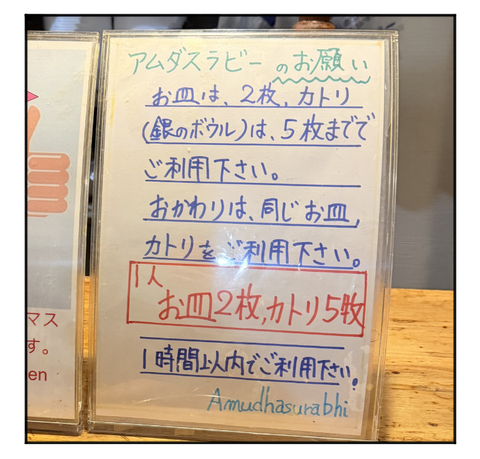 アムダスラビーのお願い
お皿は、2枚、カトリ
(銀のボウル)は、5枚までで
ご利用下さい。
おかわりは、同じお皿、
カトリをご利用下さい。
1人
お皿2枚,カトリ5枚
1時間以内でご利用下さい。
Amudhasurabhi
マス
す。
en